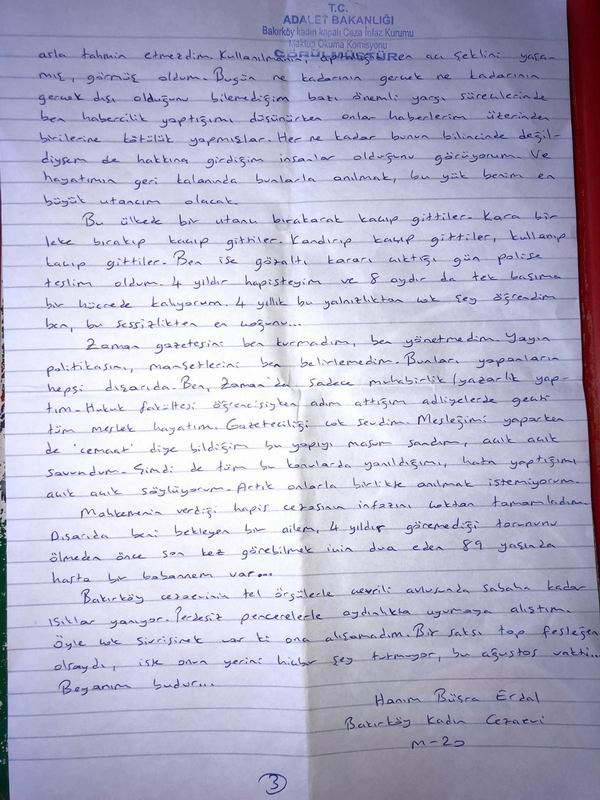 T.C.
ADALET BAKANLIĞI
Bakırköy Kadın Kapalı Ceza İnfaz Kurumu
Mektup Okuma Komisyonu
GÖRÜLMÜŞTÜR
asla tahmin etmezdim. Kullanılmanın, en acı şeklini yaşa-
mış, görmüş oldum. Bugün ne kadarının gerçek ne kadarının
gerçek dışı olduğunu bilemediğim bazı önemli yargı süreçlerinde
ben habercilik yaptığımı düşünürken onlar haberlerim üzerinden
birilerine kötülük yapmışlar. Her ne kadar bunun bilincinde değil-
diysem de hakkına girdiğim insanlar olduğunu görüyorum. Ve
hayatımın geri kalanında bunlarla anılmak, bu yük benim en
büyük utancım olacak.
Bu ülkede bir utanç bırakarak kaçıp gittiler. Kara bir
leke bırakıp kaçıp gittiler. Kandırıp kaçıp gittiler, kullanıp
kaçıp gittiler. Ben ise gözaltı kararı çıktığı gün polise
teslim oldum. 4 yıldır hapisteyim ve 8 aydır da tek başıma
bir hücrede kalıyorum. 4 yıllık bu yalnızlıktan çok şey öğrendim
ben, bu sessizlikten en çoğunu...
Zaman gazetesini ben kurmadım, ben yönetmedim. Yayın
politikasını, manşetlerini ben belirlemedim. Bunları yapanların
hepsi dışarıda. Ben, Zaman'da sadece muhabirlik/yazarlık yap-
tım. Hukuk fakültesi öğrencisiyken adım attığım adliyelerde geçti
tüm meslek hayatım. Gazeteciliği çok sevdim. Mesleğimi yaparken
de 'cemaat' diye bildiğim bu yapıyı masum sandım, açık açık
savundum. Şimdi de tüm bu konularda yanıldığımı, hata yaptığımı
açık açık söylüyorum. Artık onlarla birlikte anılmak istemiyorum.
Mahkemenin verdiği hapis cezasının infazını çoktan tamamladım.
Dışarıda beni bekleyen bir ailem, 4 yıldır göremediği torununu
ölmeden önce son kez görebilmek için dua eden 89 yaşında
hasta bir babannem var...
Bakırköy cezaevinin tel örgülerle çevrili avlusunda sabaha kadar
ışıklar yanıyor. Perdesiz pencerelerle aydınlıkta uyumaya alıştım.
Öyle çok sivrisinek var ki ona alışamadım. Bir saksı top fesleğen
olsaydı, işte onun yerini hiçbir şey tutmuyor, bu ağustos vakti...
Beyanım budur...
Hanım Büşra Erdal
Bakırköy Kadın Cezaevi
M-20
3